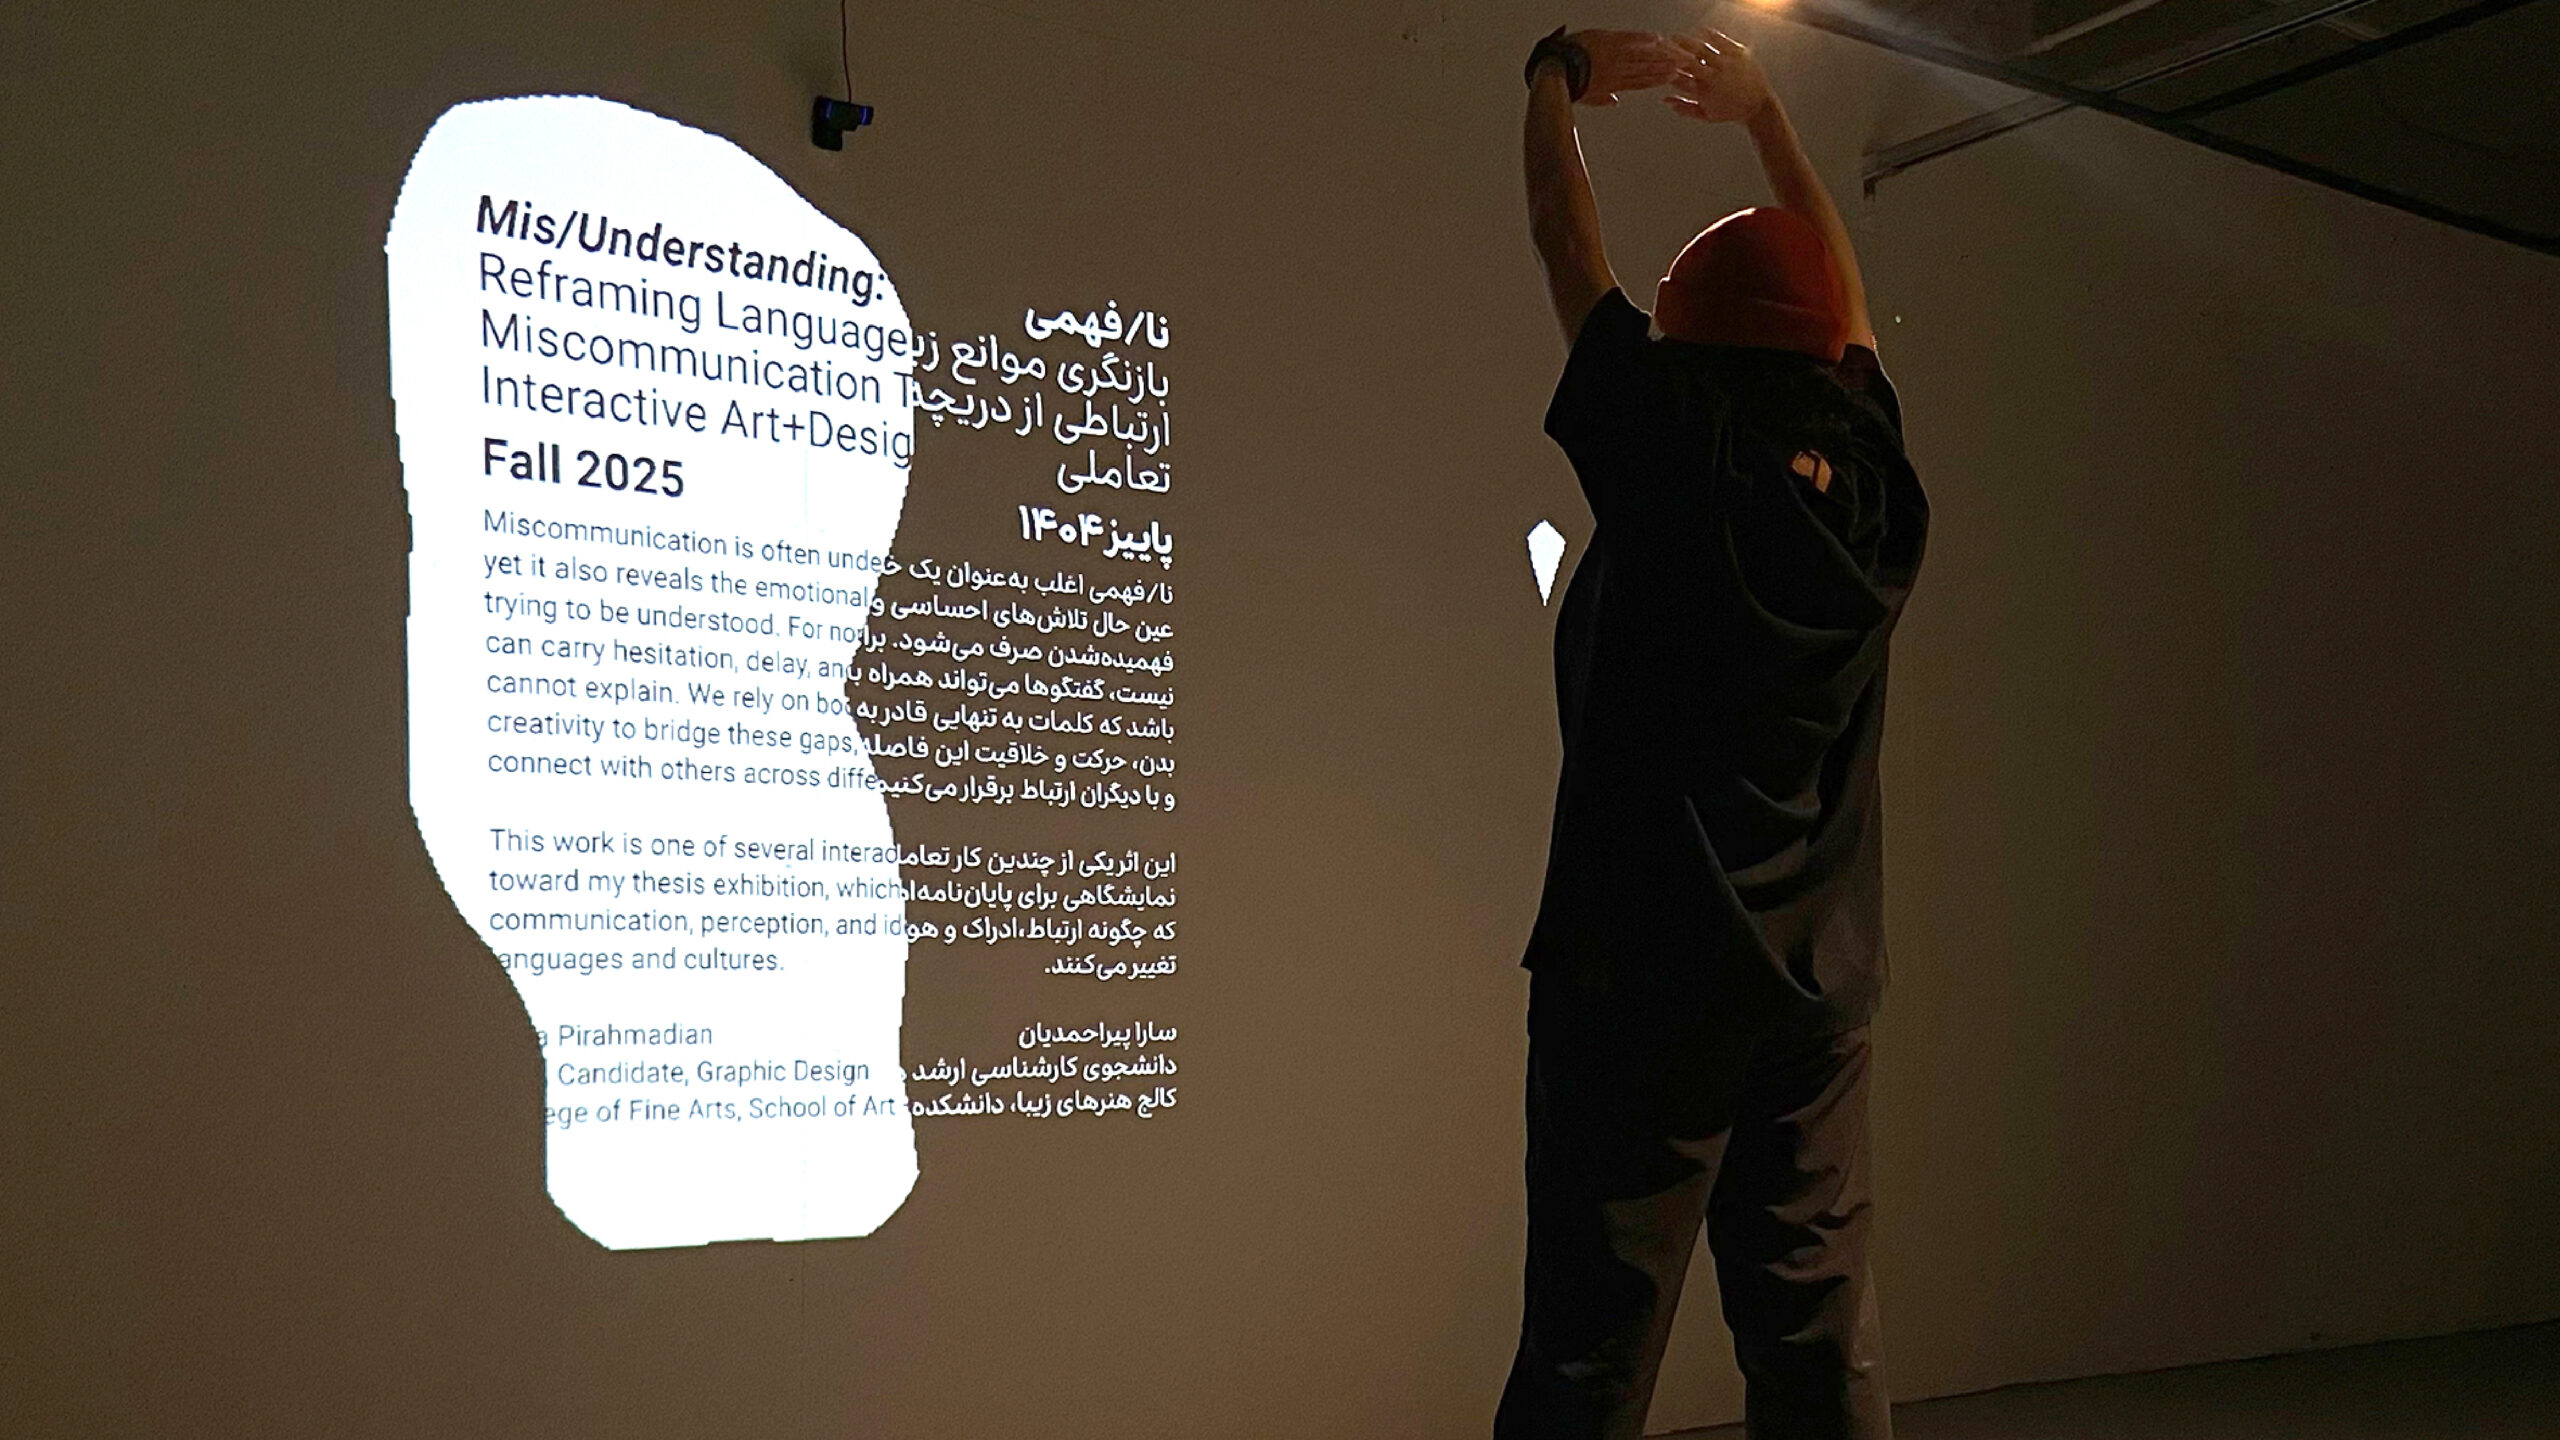 Mis/Understanding:
Reframing Language
Miscommunication T
Interactive Art+Desig
Fall 2025
Miscommunication is often unde
yet it also reveals the emotional
trying to be understood. For no
can carry hesitation, delay, and
cannot explain. We rely on bo
creativity to bridge these gaps,
connect with others across diffe
This work is one of several interac
toward my thesis exhibition, which
communication, perception, and id
anguages and cultures.
a Pirahmadian
Candidate, Graphic Design
ege of Fine Arts, School of Art
نا/فهمی
بازنگری موانع
ارتباطی از دریچه
تعاملی
پاییز ۱۴۰۴
نا/فهمی اغلب به‌عنوان یک
عین حال تلاش‌های احساسی و
فهمیده‌شدن صرف می‌شود. برا
نیست، گفتگوها می‌تواند همراه ب
باشد که کلمات به تنهایی قادر به
بدن، حرکت و خلاقیت این فاصله
و با دیگران ارتباط برقرار می‌کنیم
این اثر یکی از چندین کار تعامل
نمایشگاهی برای پایان‌نامه‌ا
که چگونه ارتباط،ادراک و هو
تغییر می‌کنند.
سارا پیراحمدیان
دانشجوی کارشناسی ارشد
کالج هنرهای زیبا، دانشکده